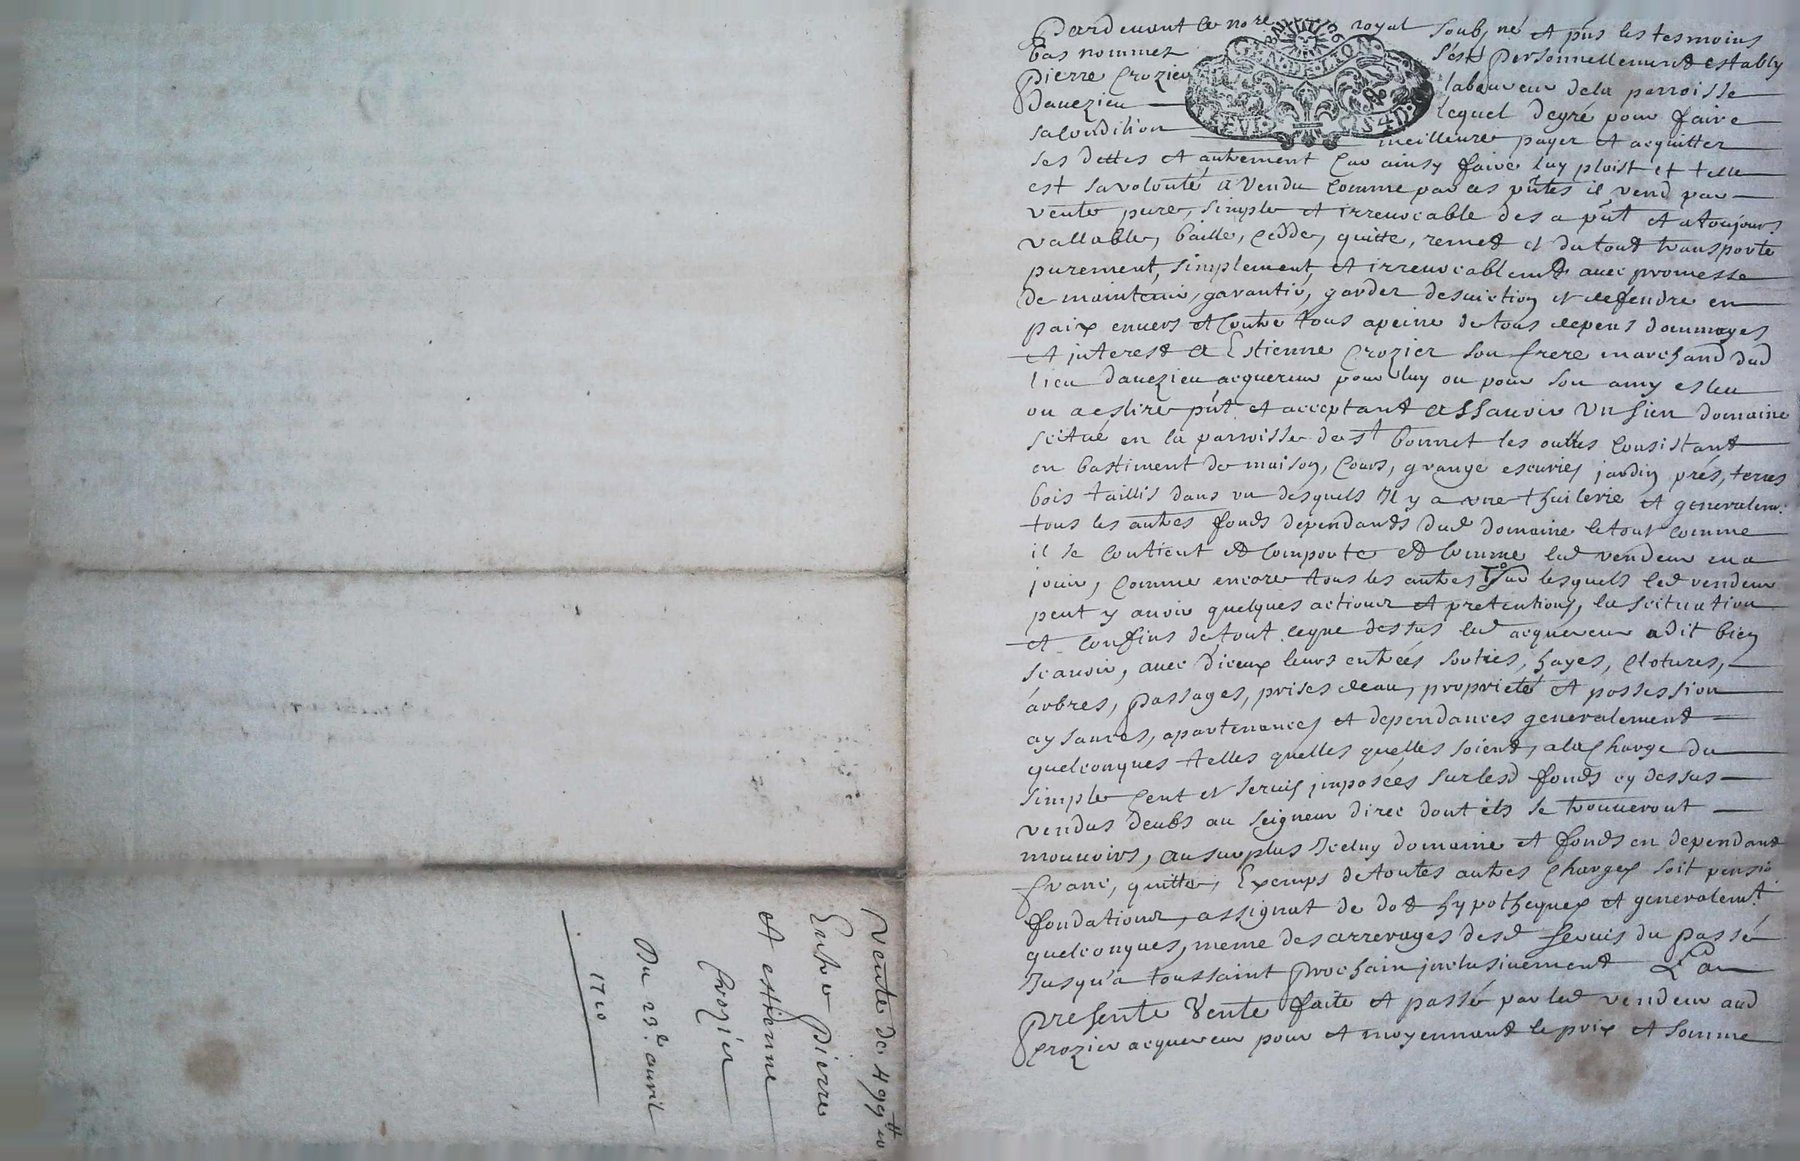 Pardevant le no.re royal soubs.né et p̃ns les tesmoins
bas nommez s'est personnellement estably
pierre Crozier laboureur dela parroisse
davezieu lequel degré pour faire
sa condition meilleure payer et acquitter
GEN. DE LYON
ses dettes et autrement car ainsy faire luy plaist et telle
est sa volonté a vendu comme par ces p̃ntes il vend par
vente pure, simple et irrevocable des a p̃nt et a toujours
vallable, baille, cedde, quitte, remet et du tout transporte
purement, simplement, et irrevocablemt avec promesse
de maintenir, garantir, garder desuiction et defendre en
paix envers et contre tous apeine de tous depens dommages
et interest a Estienne Crozier son frere marchand dud
lieu davezieu acquereur pour luy ou pour son amy esleu
ou a eslire p̃nt et acceptant assauoir Un sien domaine
scitué en la parroisse de st bonnet les oulles consistant
en bastiment de maison, cours, grange escuries jardin prés, terres
bois taillis dans un desquels Il y a une thuilerie et generalemt
tous les autres fonds dependants dud domaine le tout comme
il se contient et comporte et comme led vendeur en a
jouir, comme encore tous les autres sur lesquels led vendeur
peut y avoir quelques actions et pretentions, la scituation
et confins de tout ceque dessus led acquereur a dit bien
scavoir, avec d'iceux leurs entrées sorties, hayes, clotures,
arbres, passages, prises deau, proprieté et possession
aysances, apartenances et dependances generalement
quelconques telles quelles quelles soient, ala charge du
simple cent et servis imposées sur lesd fonds cy dessus
vendus deubs au seigneur direc dont ils se trouveront
mouvoirs, au surplus Iceluy domaine et fonds en dependant
franc, quitte, Exemps de toutes autres charges soit pensio
fondations, assignat de dot hypotheques et generalem.t
quelconques, meme des arrerages desd servis du passé
Jusqu'a toussaint prochain inclusivement La
presente Vente faite et passé par led vendeur aud
Crozier acquereur pour et moyennant le prix et somme
Vente de 499tt
Entre Pierre
et estienne
Crozier
Du 23e avril
1710